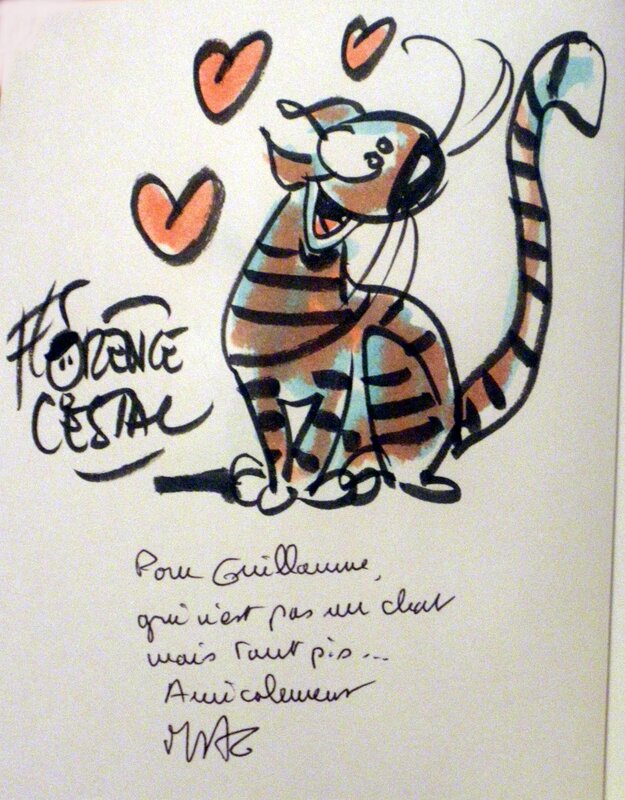 FLORENCE
CESTAC
Pour Guillaume,
qui n'est pas un chat
mais tant pis...
Amicalement